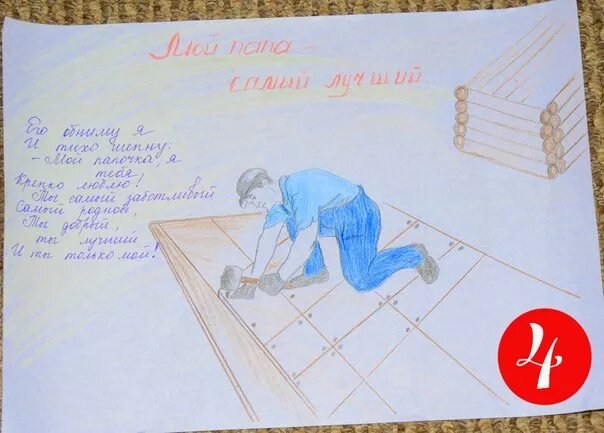 Мой папа -
самый лучший
Его обниму я
И тихо шепну:
- Мой папочка, я
тебя,
Крепко люблю!
Ты самый заботливый
Самый родной,
Ты добрый,
ты лучший
И ты только мой!
4